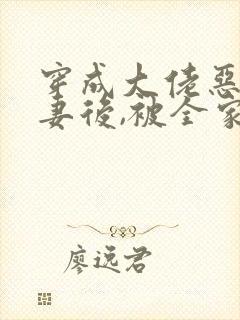 穿成大佬惡
妻後,被全家
廖远君